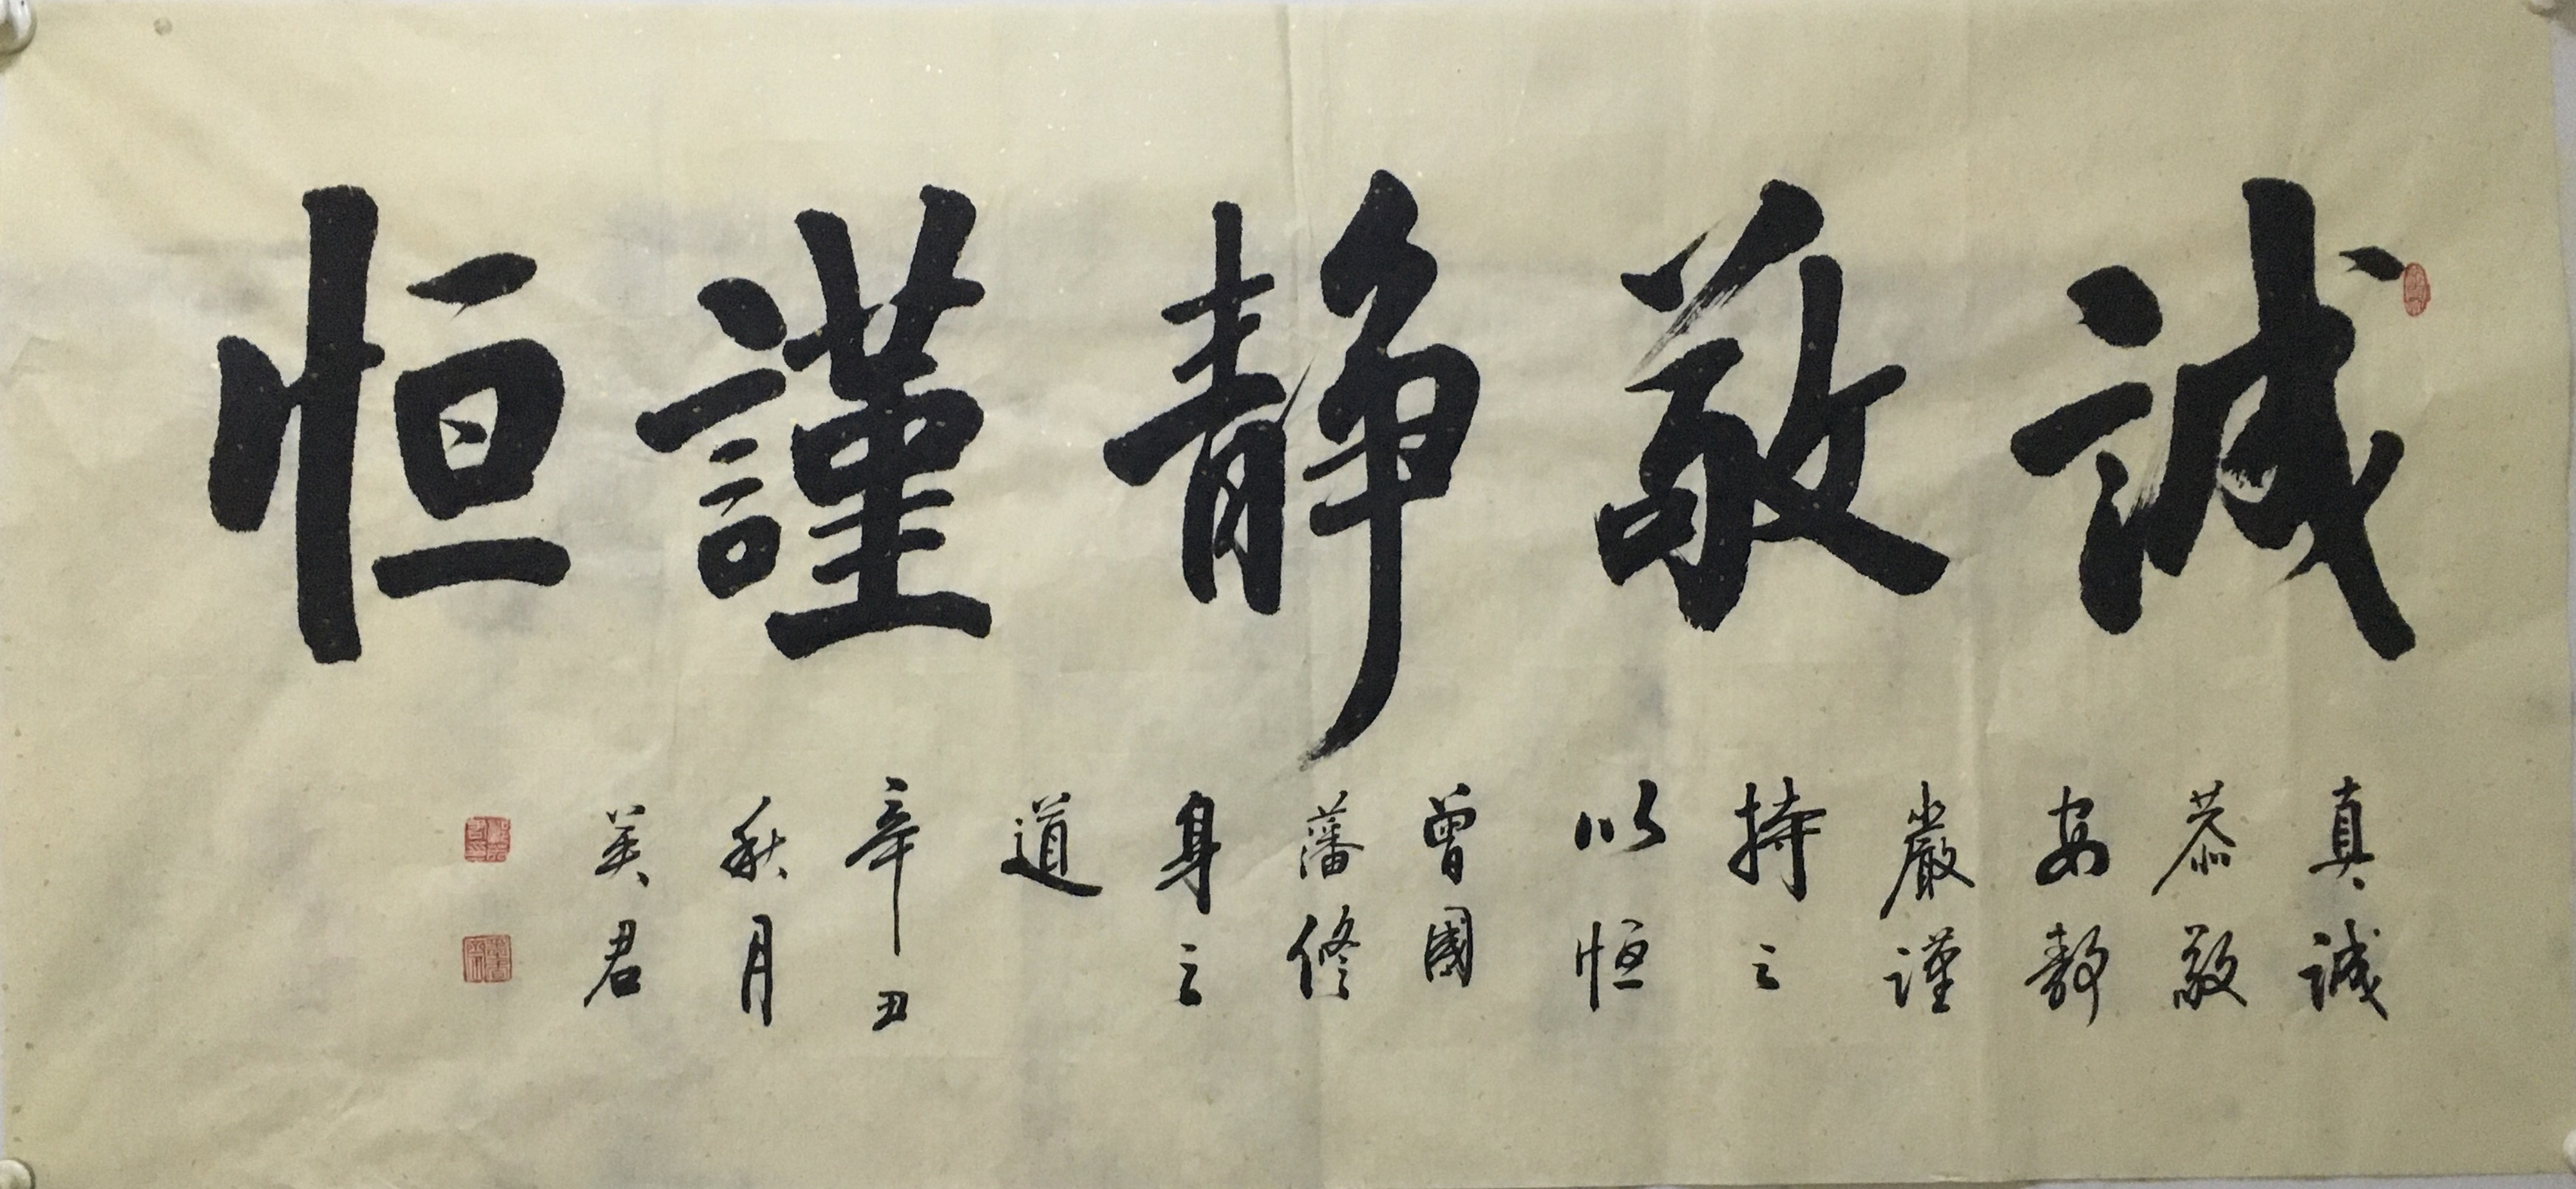 誠敬静謹恒
真誠
恭敬
安静
嚴謹
持之
以恒
曾國
藩修
身之
道
辛丑
秋月
美君